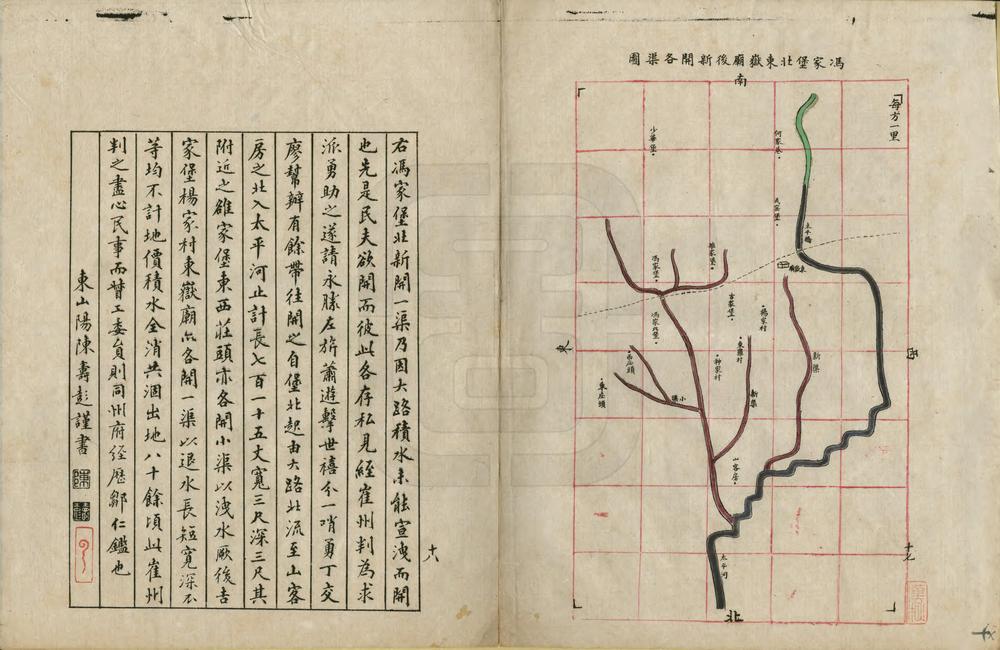 馮家堡北東嶽廟後新開各渠圖
南
每方一里
何家巷
少華堡
太平橋
東嶽廟
雒家堡
馮家堡
吉家堡
楊家村
西
東
新渠
西庄頭
東庄頭
小渠
新渠
山客房
太平河
北
十七
十八
右馮家堡北新開一渠乃因大路積水未能宣洩而開
也先是民夫欲開而彼此各存私見經崔州判為求
派勇助之遂請永勝左旂蕭遊擊世禧令一哨勇丁交
廖幫辦有餘帶往開之自堡北起由大路北流至山客
房之北入太平河止計長七百一十五丈寬三尺深三尺其
附近之雒家堡東西莊頭亦各開小渠以洩水厥後吉
家堡楊家村東嶽廟亦各開一渠以退水長短寬深不
等均不計地價積水全消共涸出地八十餘頃此崔州
判之盡心民事而督工委員則同州府經歷鄒仁鑑也
東山陽陳壽彭謹書